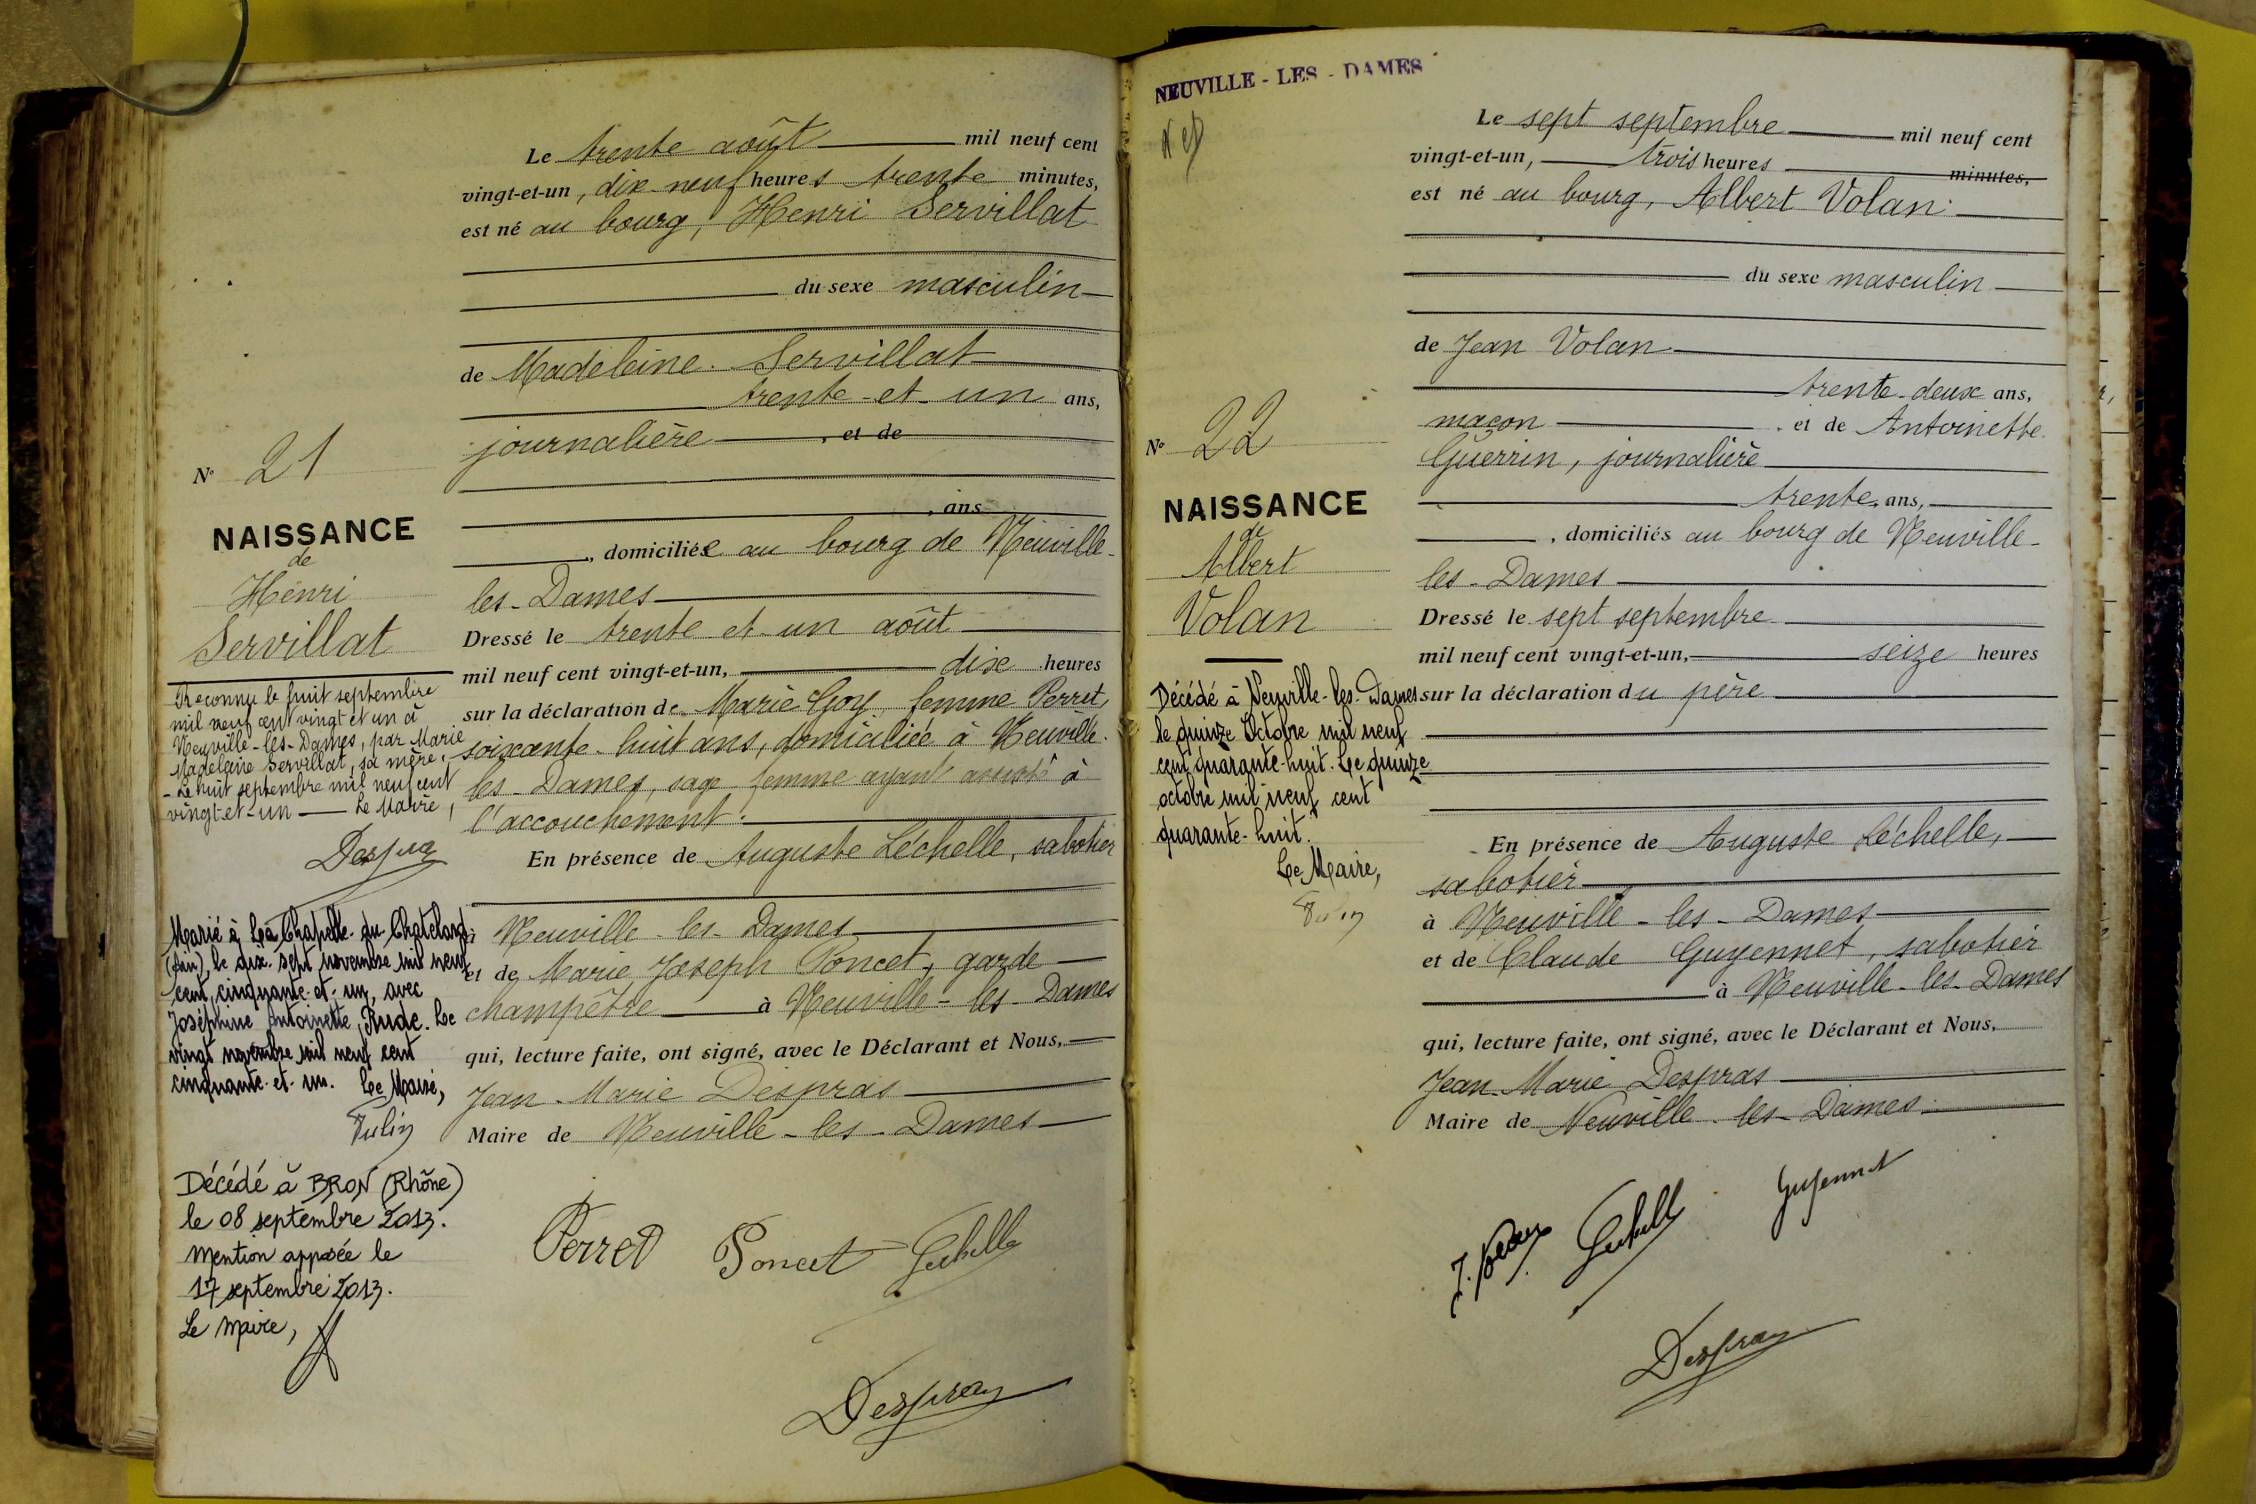 Le trente août mil neuf cent
vingt-et-un, dix neuf heures trente minutes,
est né au bourg, Henri Servillat
du sexe masculin
de Madeleine Servillat
trente-et-un ans,
journalière, et de
, ans
, domiciliée au bourg de Neuville-
les-Dames
Dressé le trente et un août
mil neuf cent vingt-et-un, dix heures
sur la déclaration de Marie Goy, femme Perret,
soixante-huit ans, domiciliée à Neuville-
les-Dames, sage femme ayant assisté à
l'accouchement.
En présence de Auguste Léchelle, sabotier
à Neuville-les-Dames
et de Marie Joseph Poncet, garde
champêtre à Neuville-les-Dames
qui, lecture faite, ont signé, avec le Déclarant et Nous,
Jean-Marie Despras
Maire de Neuville-les-Dames
Perret Poncet Léchelle
Despras
N° 21
NAISSANCE
de
Henri
Servillat
Reconnu le huit septembre
mil neuf cent vingt et un à
Neuville-les-Dames, par Marie
Madeleine Servillat, sa mère.
- Le huit septembre mil neuf cent
vingt-et-un - Le Maire,
Despras
Marié à La Chapelle-du-Chatelard
(Ain), le dix-sept novembre mil neuf
cent cinquante-et-un, avec
Joséphine Antoinette Rude. Le
vingt novembre mil neuf cent
cinquante-et-un. Le Maire,
Décédé à BRON (Rhône)
le 08 septembre 2013.
Mention apposée le
17 septembre 2013.
Le Maire,
NEUVILLE - LES - DAMES
Le sept septembre mil neuf cent
vingt-et-un, trois heures minutes,
est né au bourg, Albert Volan
du sexe masculin
de Jean Volan
trente-deux ans,
maçon, et de Antoinette
Guérrin, journalière
trente ans,
, domiciliés au bourg de Neuville-
les-Dames
Dressé le sept septembre
mil neuf cent vingt-et-un, seize heures
sur la déclaration du père
En présence de Auguste Léchelle,
sabotier
à Neuville-les-Dames
et de Claude Guyennet, sabotier
à Neuville-les-Dames
qui, lecture faite, ont signé, avec le Déclarant et Nous,
Jean-Marie Despras
Maire de Neuville-les-Dames.
J. Volan Léchelle Guyennet
Despras
N° 22
NAISSANCE
de
Albert
Volan
Décédé à Neuville-les-Dames
le quinze Octobre mil neuf
cent quarante-huit. Le quinze
octobre mil neuf cent
quarante-huit.
Le Maire,